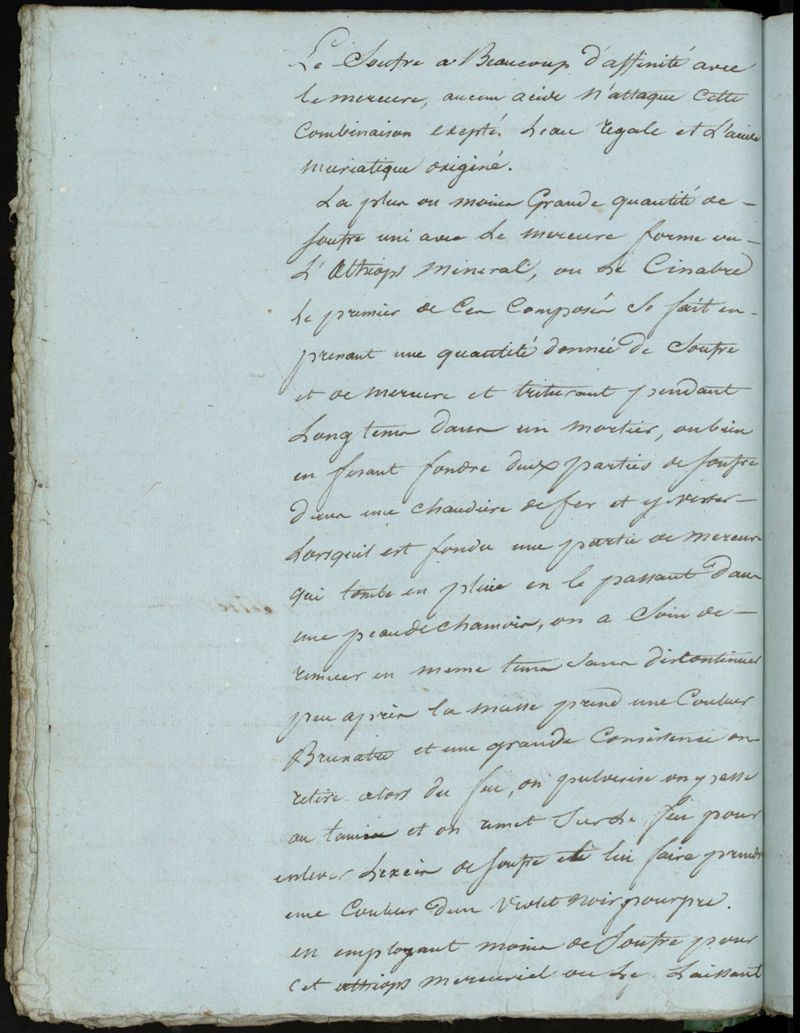 Le Soufre a Beaucoup d'affinité avec
le mercure, aucun acide N'attaque Cette
Combinaison exepté. Leau regale et L'acide
muriatique oxigéné.
La plus ou moins Grande quantité de
soufre uni avec Le mercure forme ou
L'Ethiops Mineral, ou Le Cinabre
Le premier de Ces Composés Se fait en
prenant une quantité donnée de Soufre
et de mercure et triturant pendant
Long tems dans un mortier, ou bien
en fesant fondre deux parties de soufre
dans une chaudiere de fer et y verser
Lorsquil est fondu une partie de mercure
qui tombe en pluie en le passant dans
une peau de chamois, on a Soin de
remuer en meme tems Sans discontinuer
peu après la masse prend une Couleur
Brunatre et une grande Consistence on
retire alors du feu, on pulverise on passe
au tamis et on remet Sur le feu pour
enlever Lexcès de soufre et lui faire prendre
une Couleur dun Violet Noir pourpre.
en employant moins de Soufre pour
Cet ethiops mercuriel ou Le Laissant